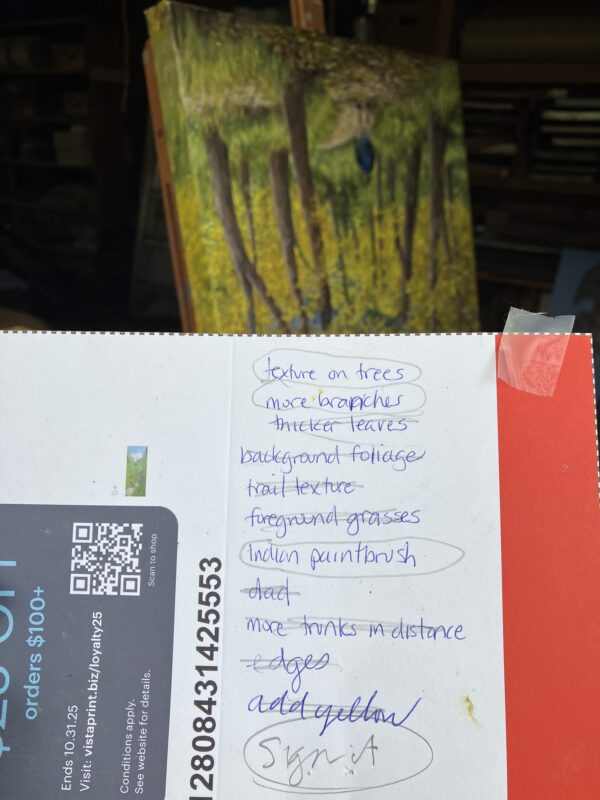 texture on trees
more branches
thicker leaves
background foliage
trail texture
foreground grasses
Indian paintbrush
dad
more trunks in distance
edges
add yellow
Sign it
orders $100+
Scan to shop
Ends 10.31.25
Visit: vistaprint.biz/loyalty25
Conditions apply.
See website for details.
12808431425553